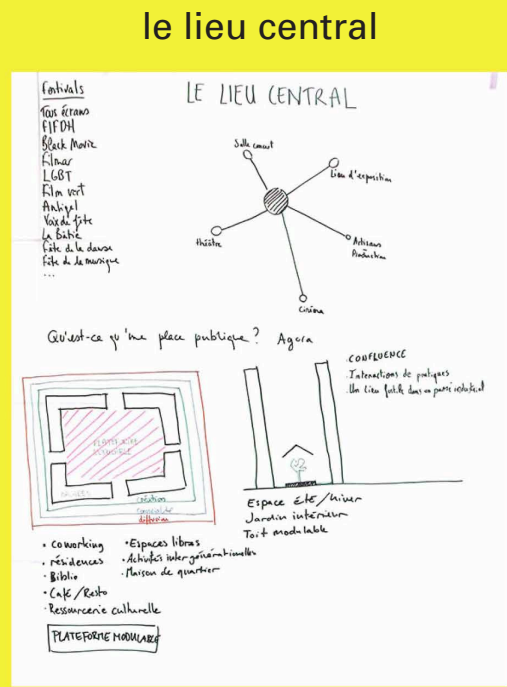 le lieu central
LE LIEU CENTRAL
Festivals
Tous écrans
FIFDH
Black Movie
Filmar
LGBT
Film vert
Antigel
Voix de fête
La Bâtie
Fête de la danse
Fête de la musique
...
Salle concert
Lieu d'exposition
théâtre
Artisans
Production
Cinéma
Qu'est-ce qu'une place publique? Agora
PLATEFORME
MODULABLE
création
convivialité
diffusion
CONFLUENCE
. Interactions de pratiques
. Un lieu fertile dans un passé industriel
Espace Été/hiver
Jardin intérieur
Toit modulable
• coworking
• résidences
• Biblio
• Café/Resto
• Ressourcerie culturelle
• Espaces libres
• Activités intergénérationelles
• Maison de quartier
PLATEFORME MODULABLE